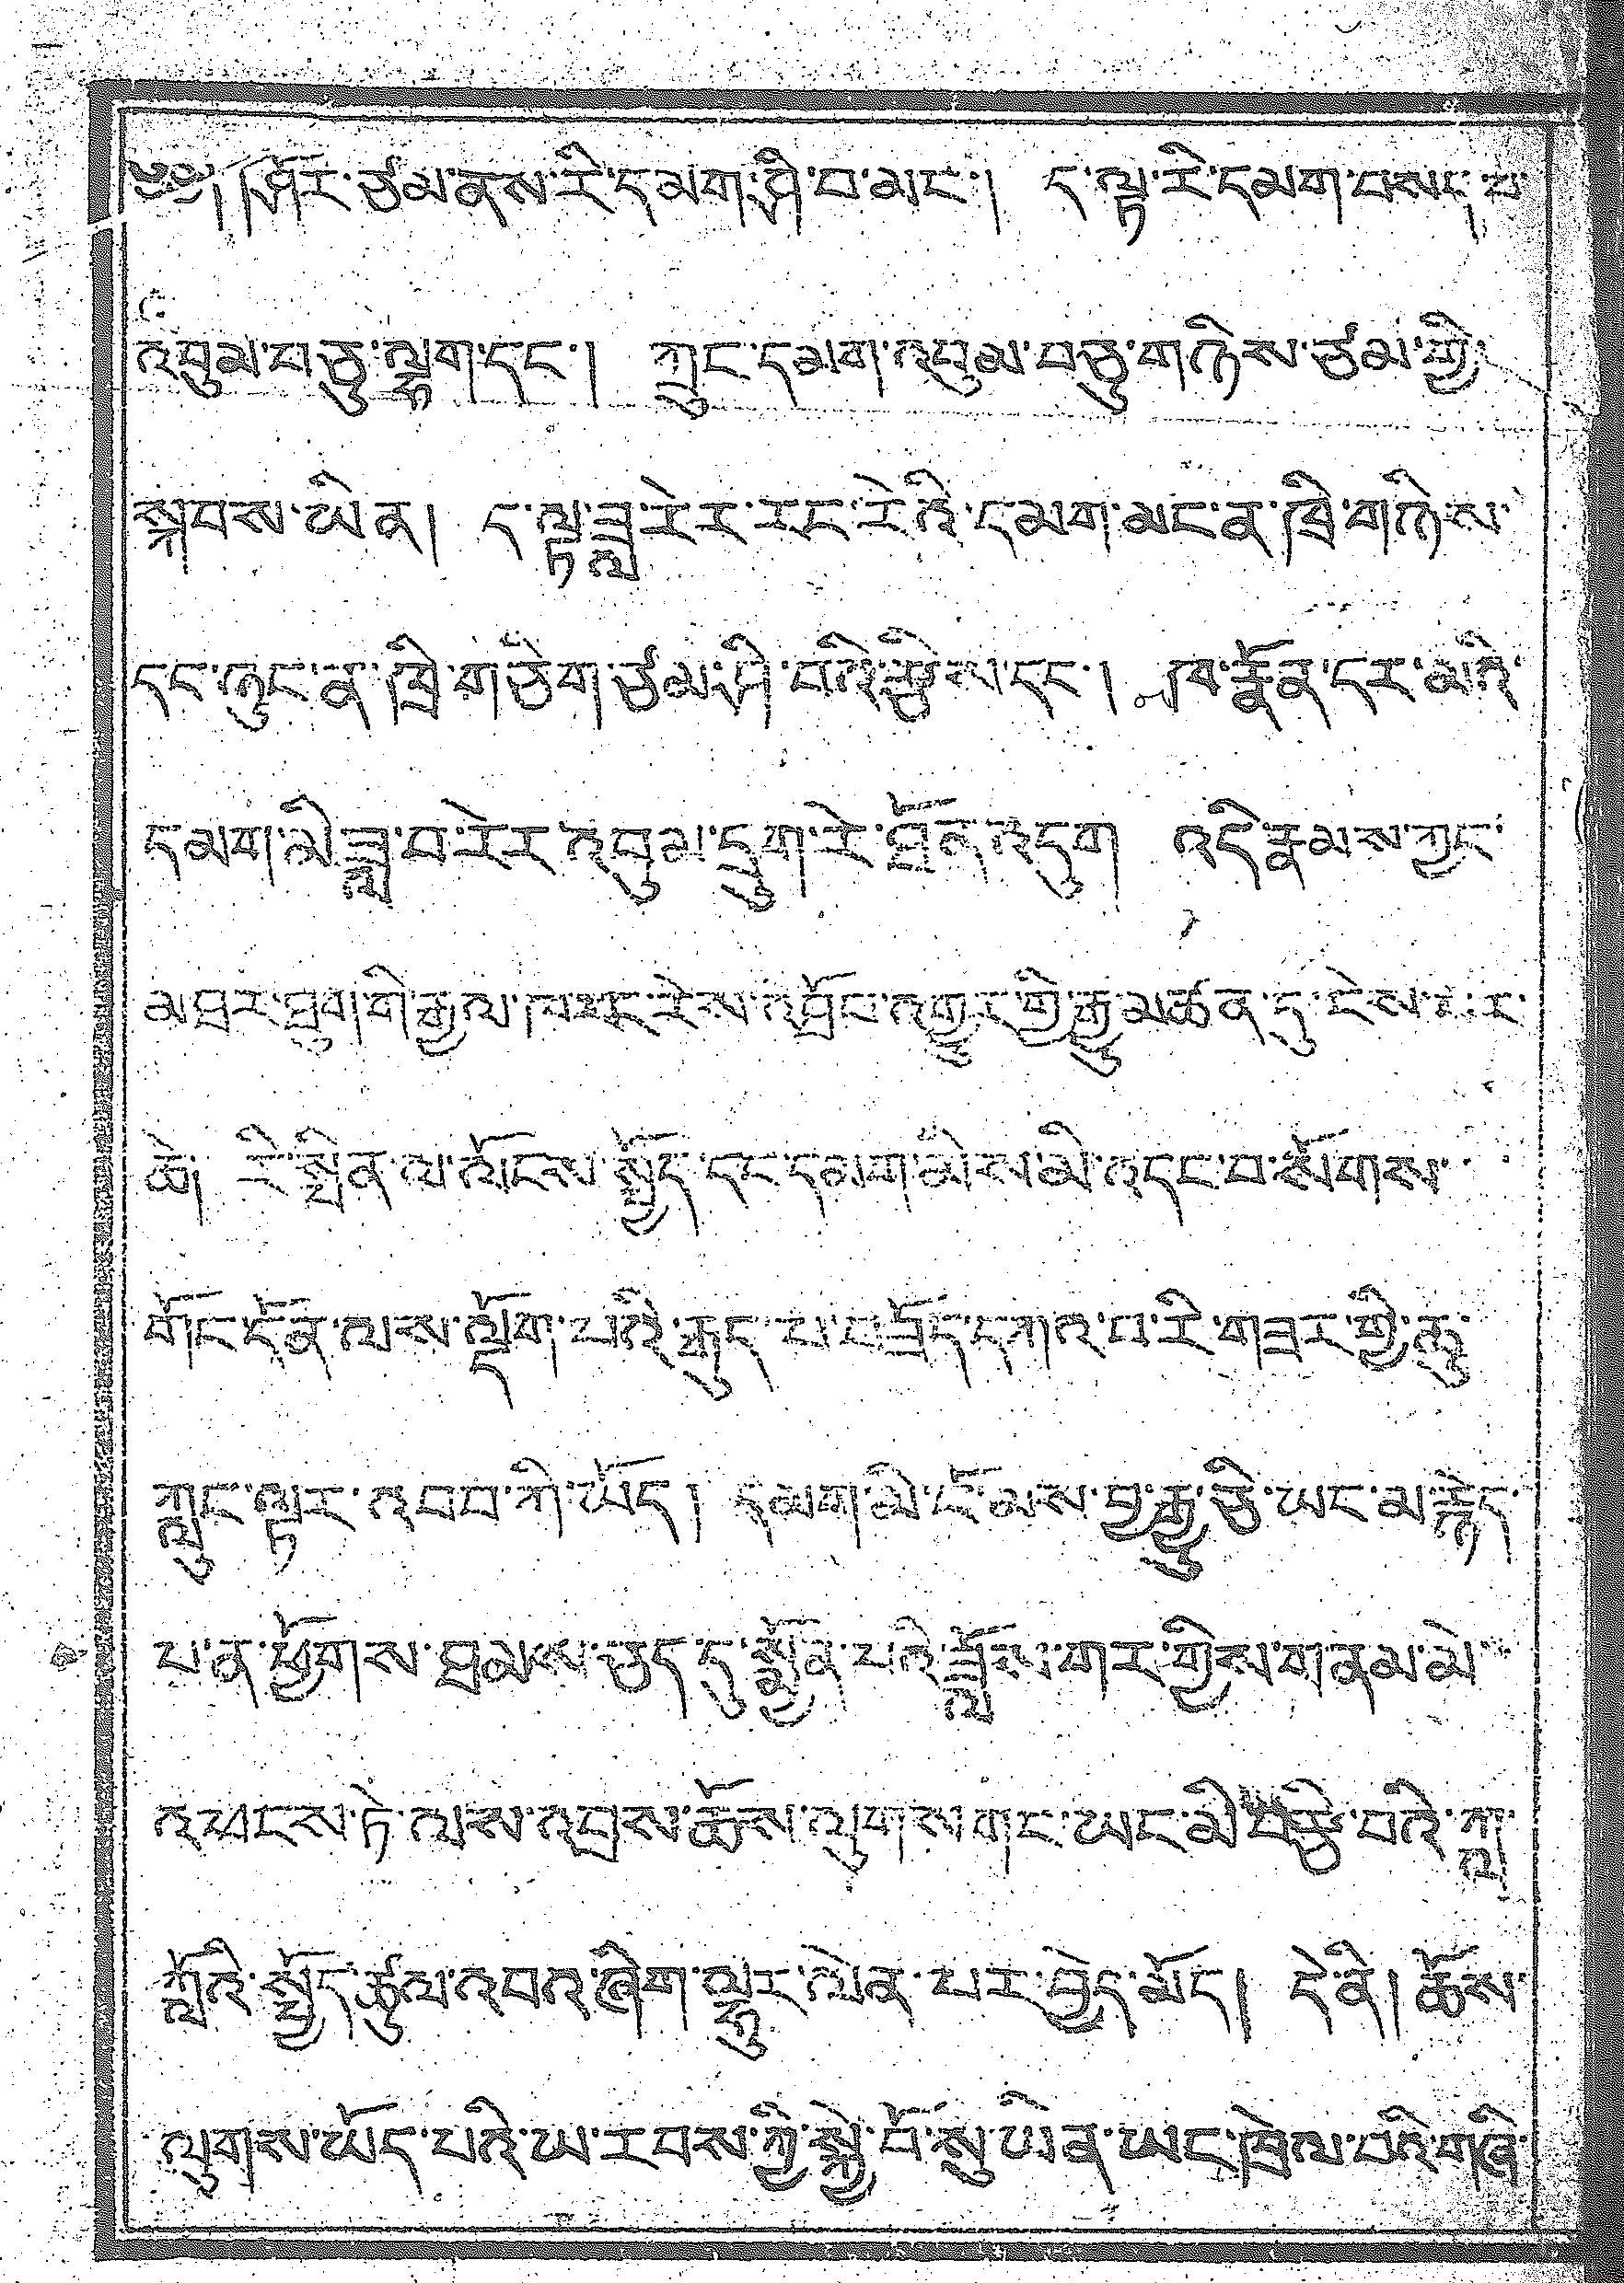 ༄༅། །ཁོར་ཙམ་ནས་རི་དམག་ཁྲི་བ་མང་། ད་ལྟ་རི་དམག་བསད་པ་
འབུམ་བཅུ་ལྷག་དང་། ཀྲུང་དམག་འབུམ་བཅུ་གཉིས་ཙམ་གྱི་
སྐབས་ཡིན། ད་ལྟ་ཟླ་རེར་རང་རེའི་དམག་མང་ན་ཁྲི་གཉིས་
དང་ཉུང་ན་ཁྲི་གཅིག་ཙམ་ཤི་བའི་སྤྱི་ དང་། ན་རྫོན་དར་མའི་
དམག་མི་ཟླ་བ་རེར་འབུམ་དྲུག་རེ་སྤྲོན་འདུག འདི་རྣམས་ཀྱང་
མཐར་ཐུག་གི་རྒྱལ་ཁ་ རེས་འཁྲོང་འགྱུར་གྱི་རྒྱུ་མཚན་དུ་ངེས་
ཅེ། རི་སྤྲིན་ལ་ལོངས་སྤྱོད་དང་དམག་མིས་མི་འདང་བ་སོགས་
གོང་དོན་ལས་ལྡོག་པའི་རྒུད་པ་ དཀའ་བ་རི་གཟར་གྱི་ཆུ་
ཀླུང་ལྟར་འབབ་ཀྱི་ཡོད། དམག་མི་ངོ་མས་བྱ་རྒྱུ་ཅི་ཡང་མ་རྙེད་
པ་ན་ཕྱོགས་ཐམས་ཅད་དུ་སྨྱོན་པའི་ཟློས་གར་གྱིས་གནམ་མེ་
འཕངས་ཏེ་ལས་འབྲས་ཆོས་ལུགས་གང་ཡང་མི་ བའི་ཀླ་
ཀློའི་སྤྱོད་ཚུལ་འབའ་ཞིག་ལྷུར་ལེན་པར་བྱེད་མོད། དེ་ནི། ཆོས་
ལུགས་ཡོད་པའི་ཡ་རབས་ཀྱི་སྐྱེ་བོ་སུ་ཡིན་ཡང་ཁྲེལ་བའི་གཞི་